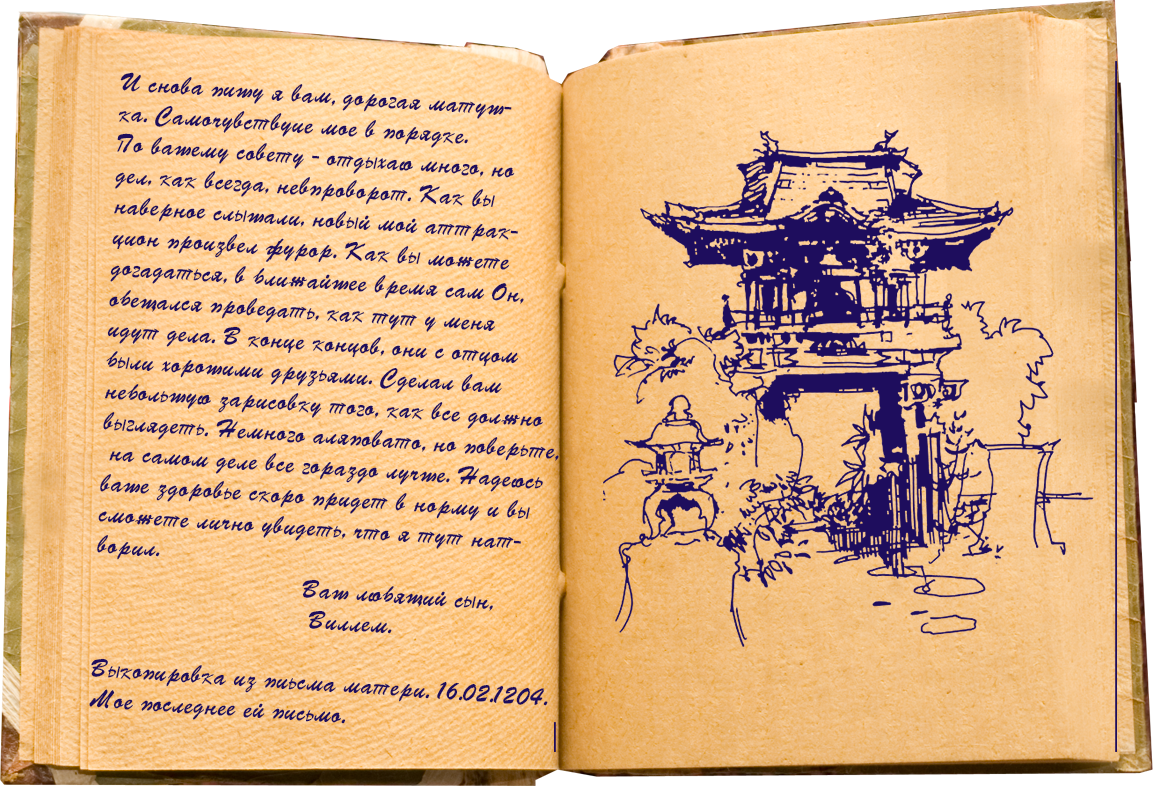 И снова пишу я вам, дорогая матуш-
ка. Самочувствуие мое в порядке.
По вашему совету - отдыхаю много, но
дел, как всегда, невпроворот. Как вы
наверное слышали, новый мой аттрак-
цион произвел фурор. Как вы можете
догадаться, в ближайшее время сам Он,
обещался проведать, как тут у меня
идут дела. В конце концов, они с отцом
были хорошими друзьями. Сделал вам
небольшую зарисовку того, как все должно
выглядеть. Немного аляповато, но поверьте,
на самом деле все гораздо лучше. Надеюсь
ваше здоровье скоро придет в норму и вы
сможете лично увидеть, что я тут нат-
ворил.
Ваш любящий сын,
Виллем.
Выкопировка из письма матери. 16.02.1204.
Мое последнее ей письмо.